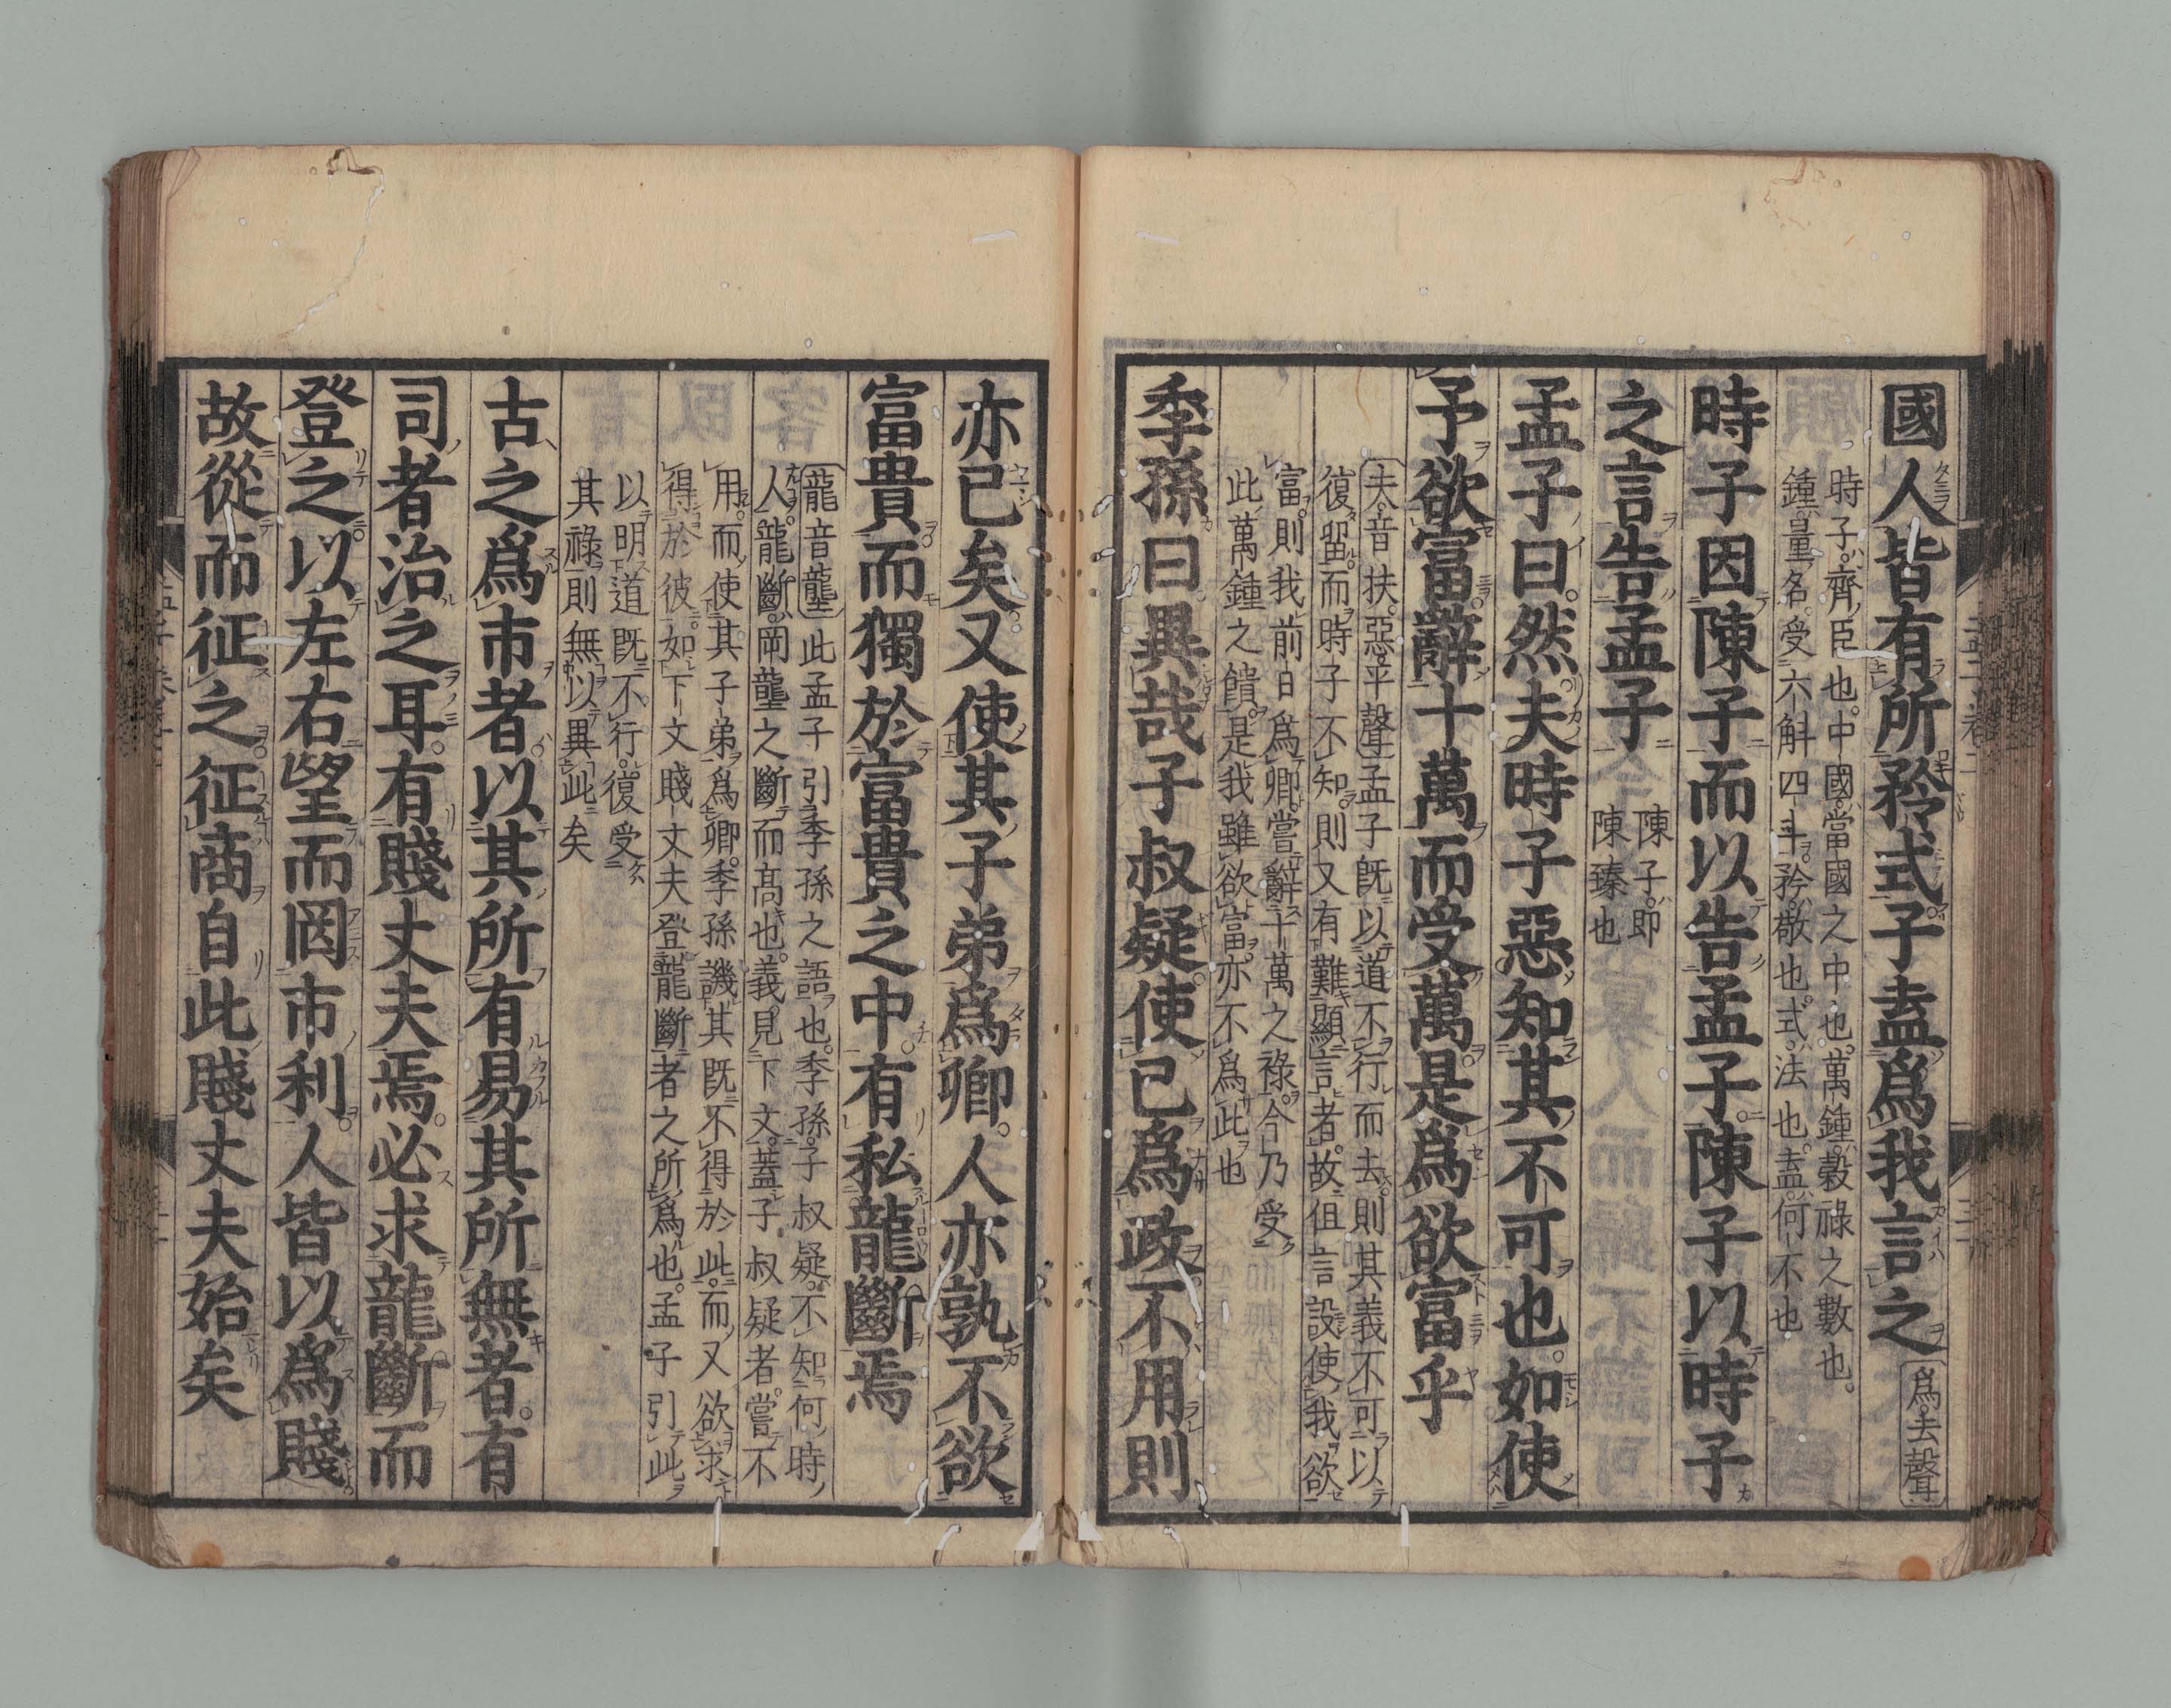 國人皆有所矜式子盍爲我言之 爲去聲
時子齊臣也中國當國之中也萬鍾穀祿之數也
鍾量名受六斛四斗矜敬也式法也盍何不也
時子因陳子而以告孟子陳子以時子
之言告孟子
陳子即
陳臻也
孟子曰然夫時子惡知其不可也如使
予欲富辭十萬而受萬是爲欲富乎
夫音扶惡平聲 孟子既以道不行而去則其義不可以
復留而時子不知則又有難顯言者故但言設使我欲
富則我前日爲卿嘗辭十萬之祿今乃受
此萬鍾之饋是我雖欲富亦不爲此也
季孫曰異哉子叔疑使己爲政不用則
亦已矣又使其子弟爲卿人亦孰不欲
富貴而獨於富貴之中有私龍斷焉
龍音壟 此孟子引季孫之語也季孫子叔疑不知何時
人龍斷岡壟之斷而髙也義見下文蓋子叔疑者嘗不
用而使其子弟爲卿季孫譏其既不得於此而又欲求
得於彼如下文賤丈夫登龍斷者之所爲也孟子引此
以明道既不行復受
其祿則無以異此矣
古之爲市者以其所有易其所無者有
司者治之耳有賤丈夫焉必求龍斷而
登之以左右望而罔市利人皆以爲賤
故從而征之征商自此賤丈夫始矣